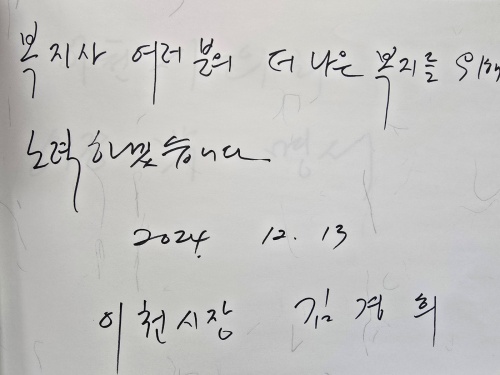 복지사 여러분의 더 나은 복지를 위해
노력하겠습니다
2024. 12. 13
이천시장 김경희